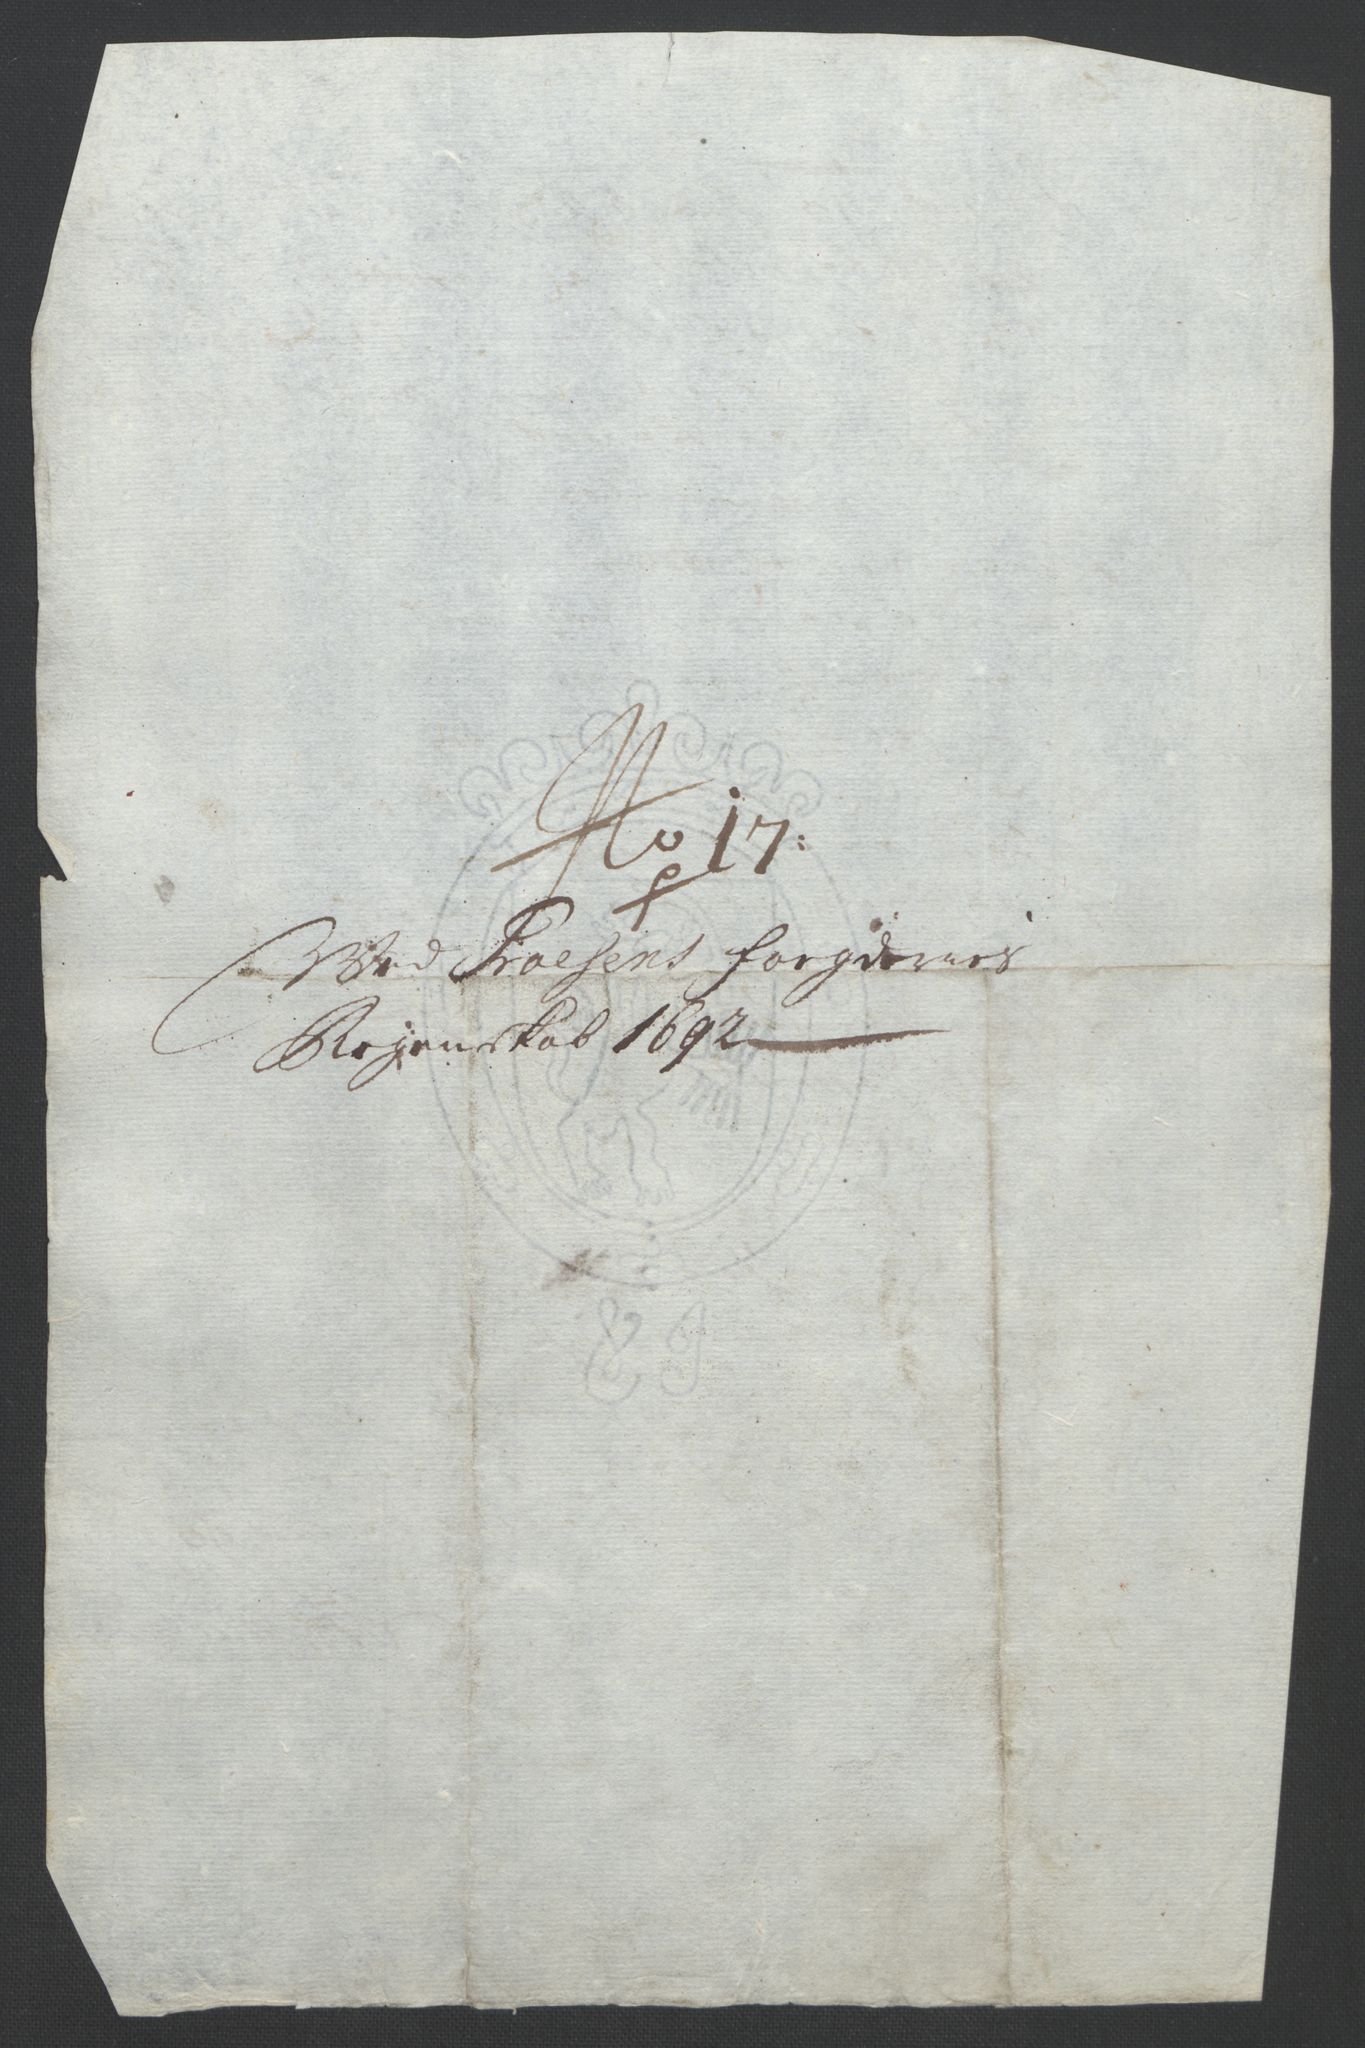 No 17:
Wed Troesens foegdernes
Regenskab 1692